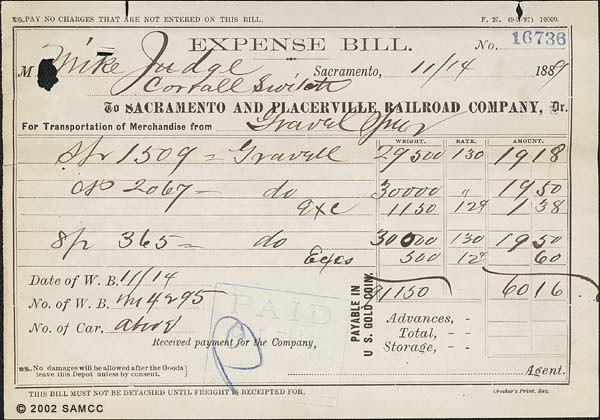 PAY NO CHARGES THAT ARE NOT ENTERED ON THIS BILL. F. 27. (9-9-'87) 10000.
EXPENSE BILL. No. 16736
M Mike Judge Sacramento, 11/14 1889
Corrall Switch
To SACRAMENTO AND PLACERVILLE RAILROAD COMPANY, Dr.
For Transportation of Merchandise from Gravel Spur
WEIGHT. RATE. AMOUNT.
Sp 1509 = Gravell 29500 130 1918
2067 - do 30000 " 1950
Exc 1150 12¢ 1 38
Sp 365 = do 30000 130 1950
Exc 500 12¢ 60
Date of W. B. 11/14 91150 6016
No. of W. B. 4295
No. of Car, above
PAID
PAYABLE IN
U. S. GOLD COIN.
Advances, - -
Total, - -
Storage, - -
Received payment for the Company,
No damages will be allowed after the Goods
leave this Depot unless by consent. Agent.
THIS BILL MUST NOT BE DETACHED UNTIL FREIGHT IS RECEIPTED FOR. Crocker's Print, Sac.
© 2002 SAMCC